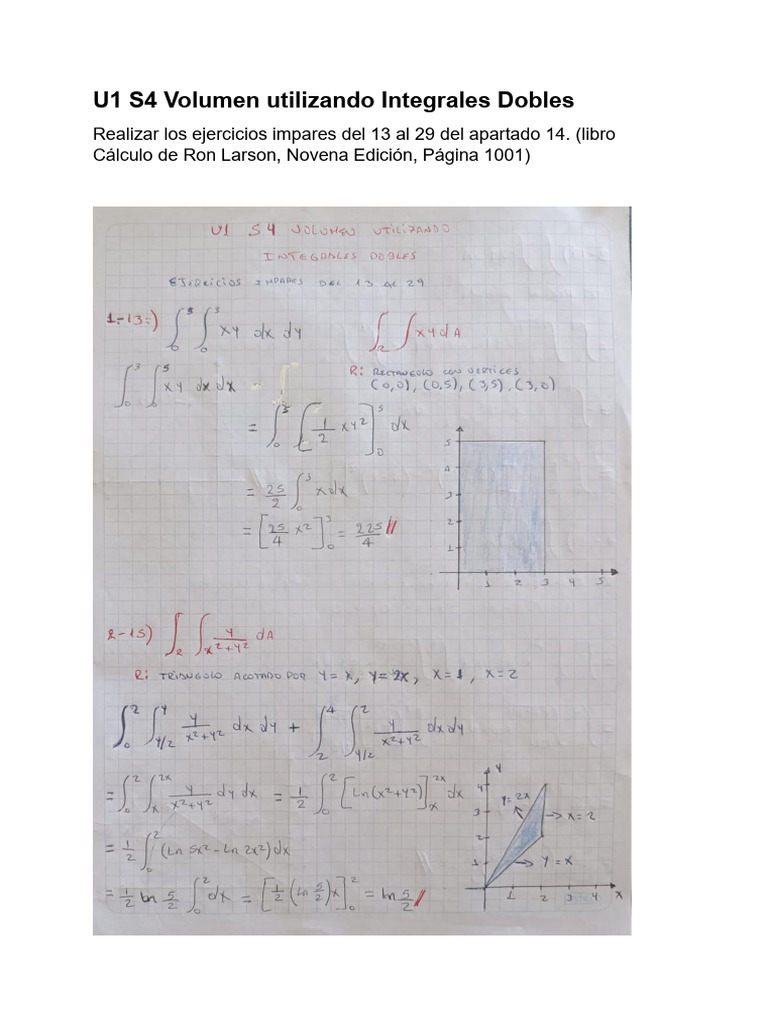 U1 S4 Volumen utilizando Integrales Dobles
Realizar los ejercicios impares del 13 al 29 del apartado 14. (libro
Cálculo de Ron Larson, Novena Edición, Página 1001)
U1 S4 VOLUMEN UTILIZANDO
INTEGRALES DOBLES
EJERCICIOS IMPARES DEL 13 AL 29
1.-13.-) ∫₀⁵ ∫₀³ xy dx dy ∫_R ∫ xy dA
R: RECTANGULO CON VERTICES
(0,0), (0,5), (3,5), (3,0)
∫₀³ ∫₀⁵ xy dx dx
= ∫₀³ [1/2 xy²]₀⁵ dx
= 25/2 ∫₀³ x dx
= [25/4 x²]₀³ = 225/4 //
5
4
3
2
1
1 2 3 4 5
2-15) ∫_R ∫ y/(x²+y²) dA
R: TRIANGULO ACOTADO POR y = x, y = 2x, x = 1, x = 2
∫₀² ∫_{y/2}^{y} y/(x²+y²) dx dy + ∫₂⁴ ∫_{y/2}^{2} y/(x²+y²) dx dy
= ∫₀² ∫ₓ^{2x} y/(x²+y²) dy dx = 1/2 ∫₀² [Ln(x²+y²)]ₓ^{2x} dx
= 1/2 ∫₀² (Ln 5x² - Ln 2x²) dx
= 1/2 ln 5/2 ∫₀² dx = [1/2 (Ln 5/2) x]₀² = ln 5/2 //
Y
4
3
2
1
y=2x
x=2
y=x
1 2 3 4 X